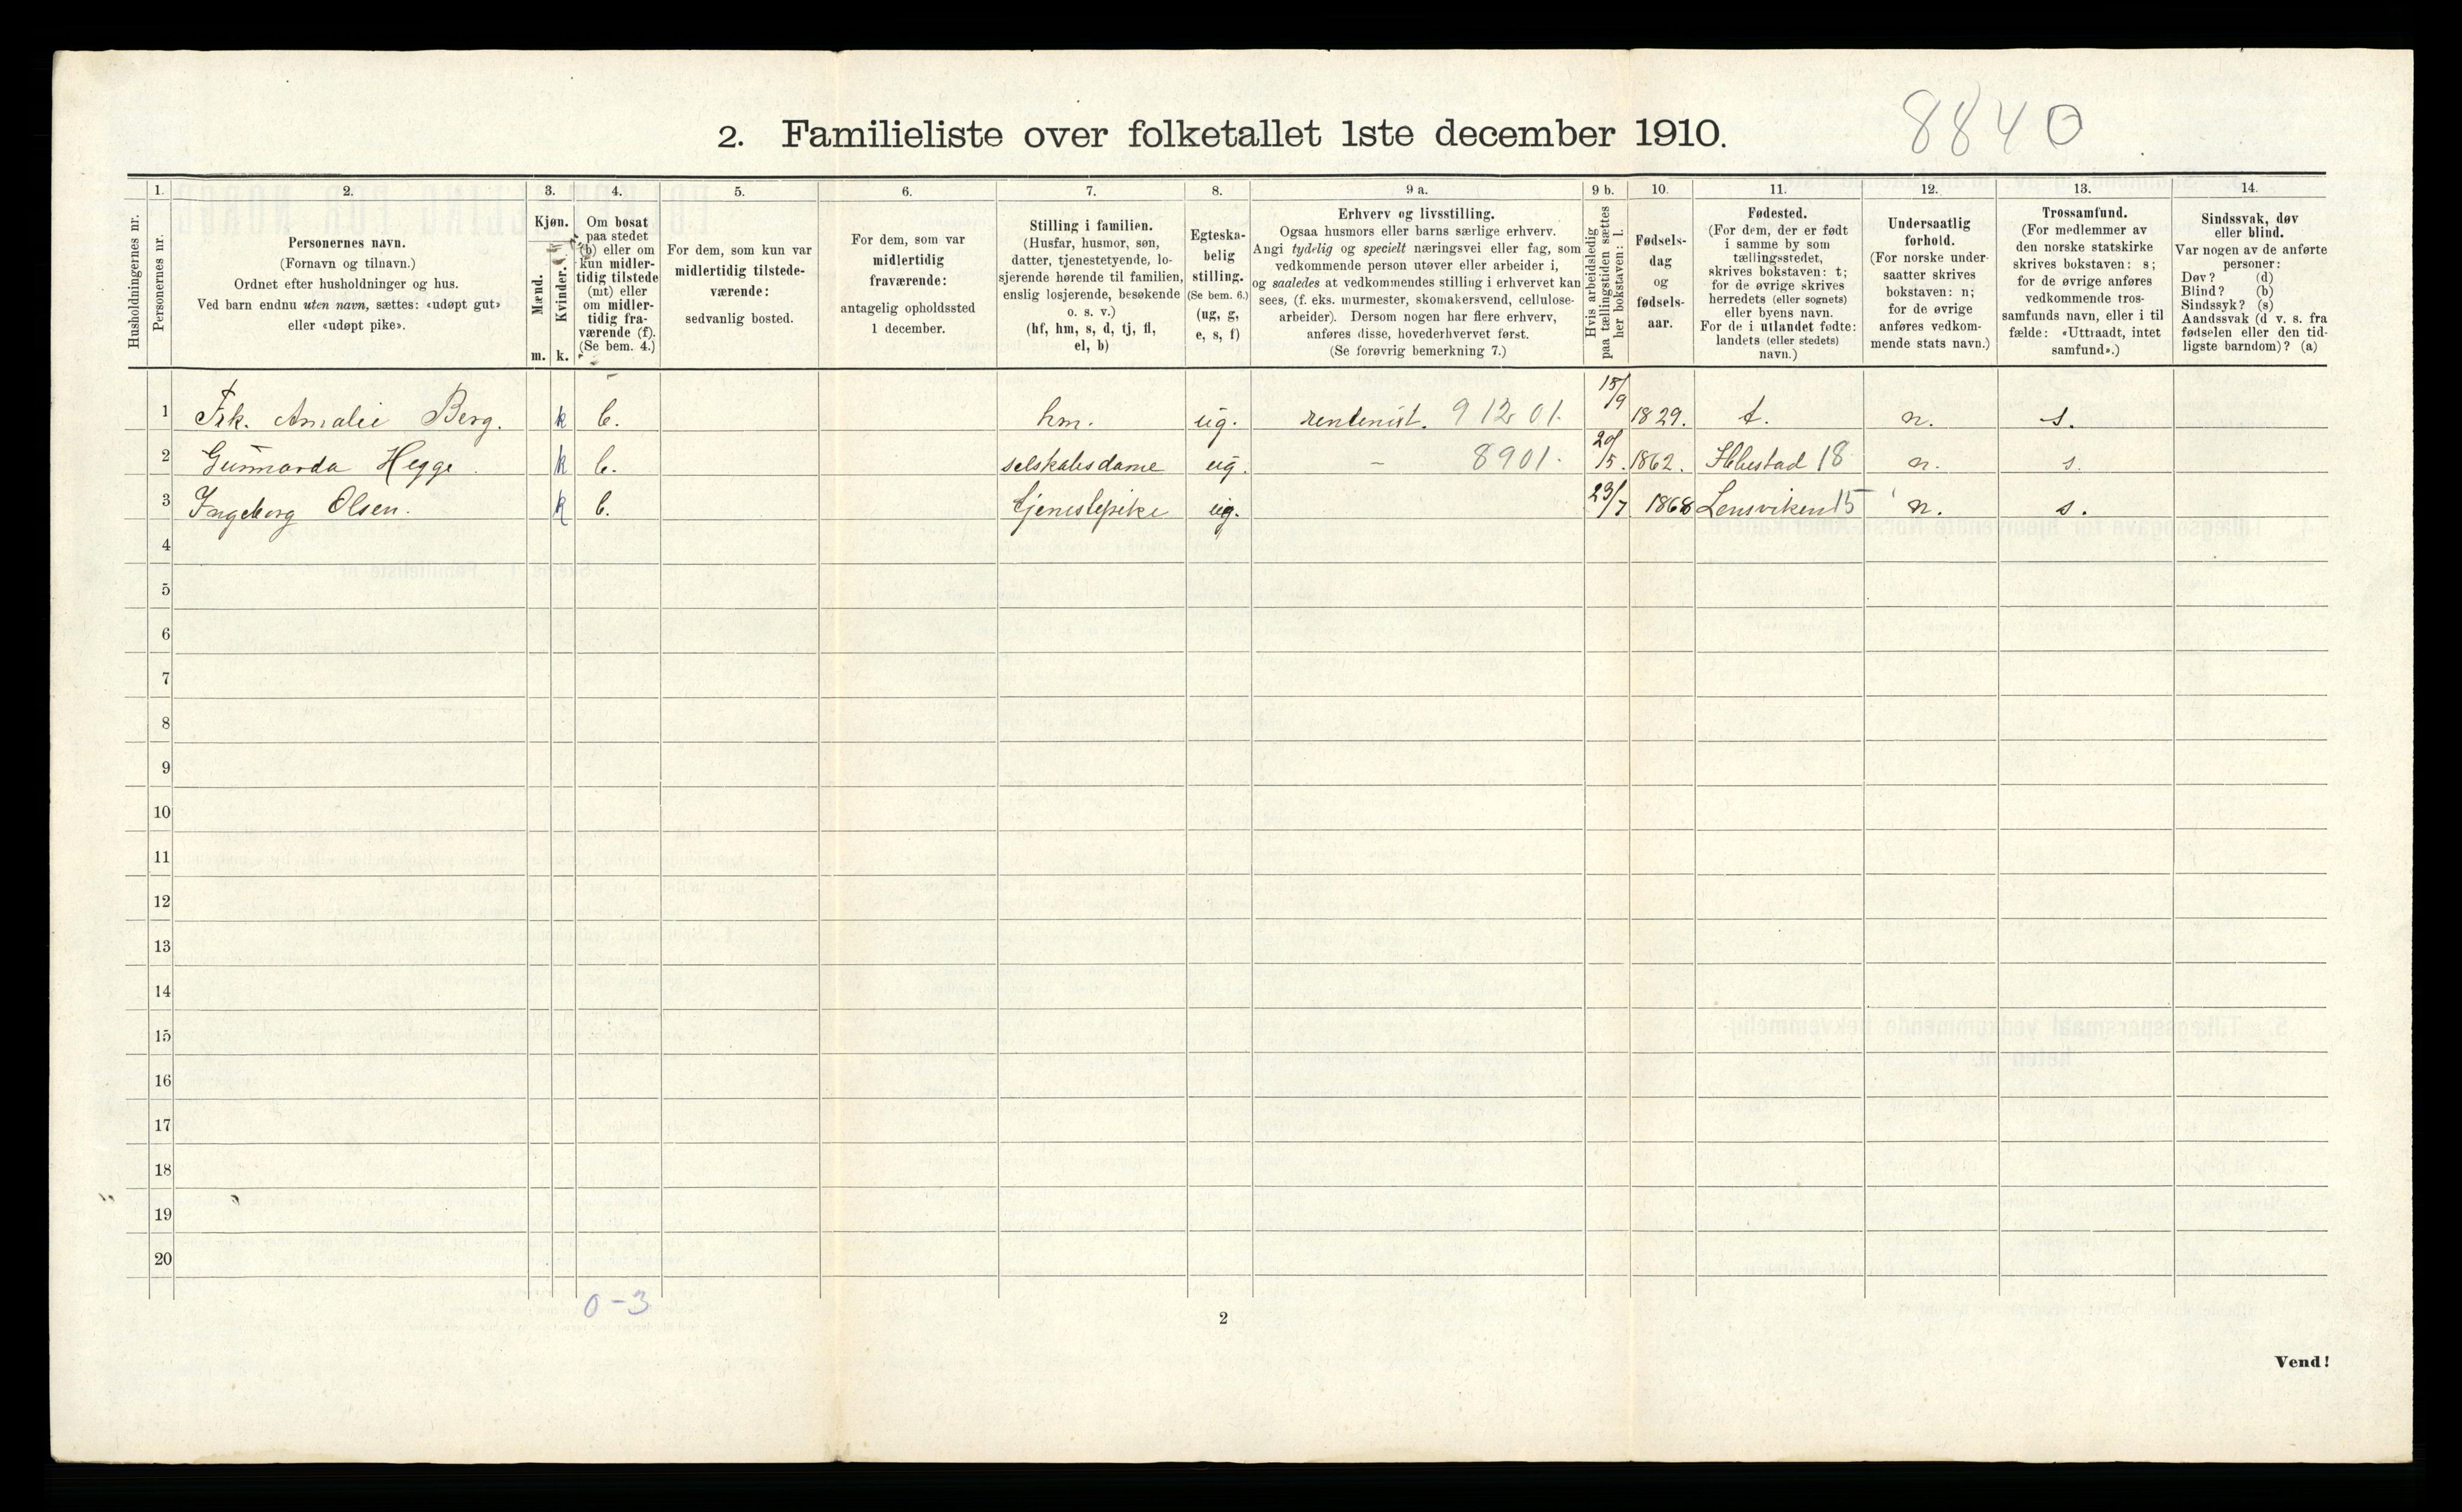 8840
2. Familieliste over folketallet 1ste december 1910.
1. 2. 3. 4. 5. 6. 7. 8. 9 a. 9 b. 10. 11. 12. 13. 14.
Husholdningernes nr.
Personernes nr.
Personernes navn.
(Fornavn og tilnavn.)
Ordnet efter husholdninger og hus.
Ved barn endnu uten navn, sættes: «udøpt gut»
eller «udøpt pike».
Kjøn.
Mænd.
Kvinder.
m. k.
Om bosat
paa stedet
(b) eller om
kun midler-
tidig tilstede
(mt) eller
om midler-
tidig fra-
værende (f).
(Se bem. 4.)
For dem, som kun var
midlertidig tilstede-
værende:
sedvanlig bosted.
For dem, som var
midlertidig
fraværende:
antagelig opholdssted
1 december.
Stilling i familien.
(Husfar, husmor, søn,
datter, tjenestetyende, lo-
sjerende hørende til familien,
enslig losjerende, besøkende
o. s. v.)
(hf, hm, s, d, tj, fl,
el, b)
Egteska-
belig
stilling.
(Se bem. 6.)
(ug, g,
e, s, f)
Erhverv og livsstilling.
Ogsaa husmors eller barns særlige erhverv.
Angi tydelig og specielt næringsvei eller fag, som
vedkommende person utøver eller arbeider i,
og saaledes at vedkommendes stilling i erhvervet kan
sees, (f. eks. murmester, skomakersvend, cellulose-
arbeider). Dersom nogen har flere erhverv,
anføres disse, hovederhvervet først.
(Se forøvrig bemerkning 7.)
Hvis arbeidsledig
paa tællingstiden sættes
her bokstaven: l.
Fødsels-
dag
og
fødsels-
aar.
Fødested.
(For dem, der er født
i samme by som
tællingsstedet,
skrives bokstaven: t;
for de øvrige skrives
herredets (eller sognets)
eller byens navn.
For de i utlandet fødte:
landets (eller stedets)
navn.)
Undersaatlig
forhold.
(For norske under-
saatter skrives
bokstaven: n;
for de øvrige
anføres vedkom-
mende stats navn.)
Trossamfund.
(For medlemmer av
den norske statskirke
skrives bokstaven: s;
for de øvrige anføres
vedkommende tros-
samfunds navn, eller i til
fælde: «Uttraadt, intet
samfund».)
Sindssvak, døv
eller blind.
Var nogen av de anførte
personer:
Døv? (d)
Blind? (b)
Sindssyk? (s)
Aandssvak (d v. s. fra
fødselen eller den tid-
ligste barndom)? (a)
1 Frk. Amalie Berg. k b. hm. ug. rentenist. 9 12 01. 15/9 1829. t. n. s.
2 Gunnarda Hegge. k b. selskabsdame ug. – 8901. 20/5. 1862. Ibbestad 18 n. s.
3 Ingeborg Olsen. k b. tjenestepike ug. 23/7 1868 Lensviken 15 n. s.
4
5
6
7
8
9
10
11
12
13
14
15
16
17
18
19
20
0-3
2
Vend!